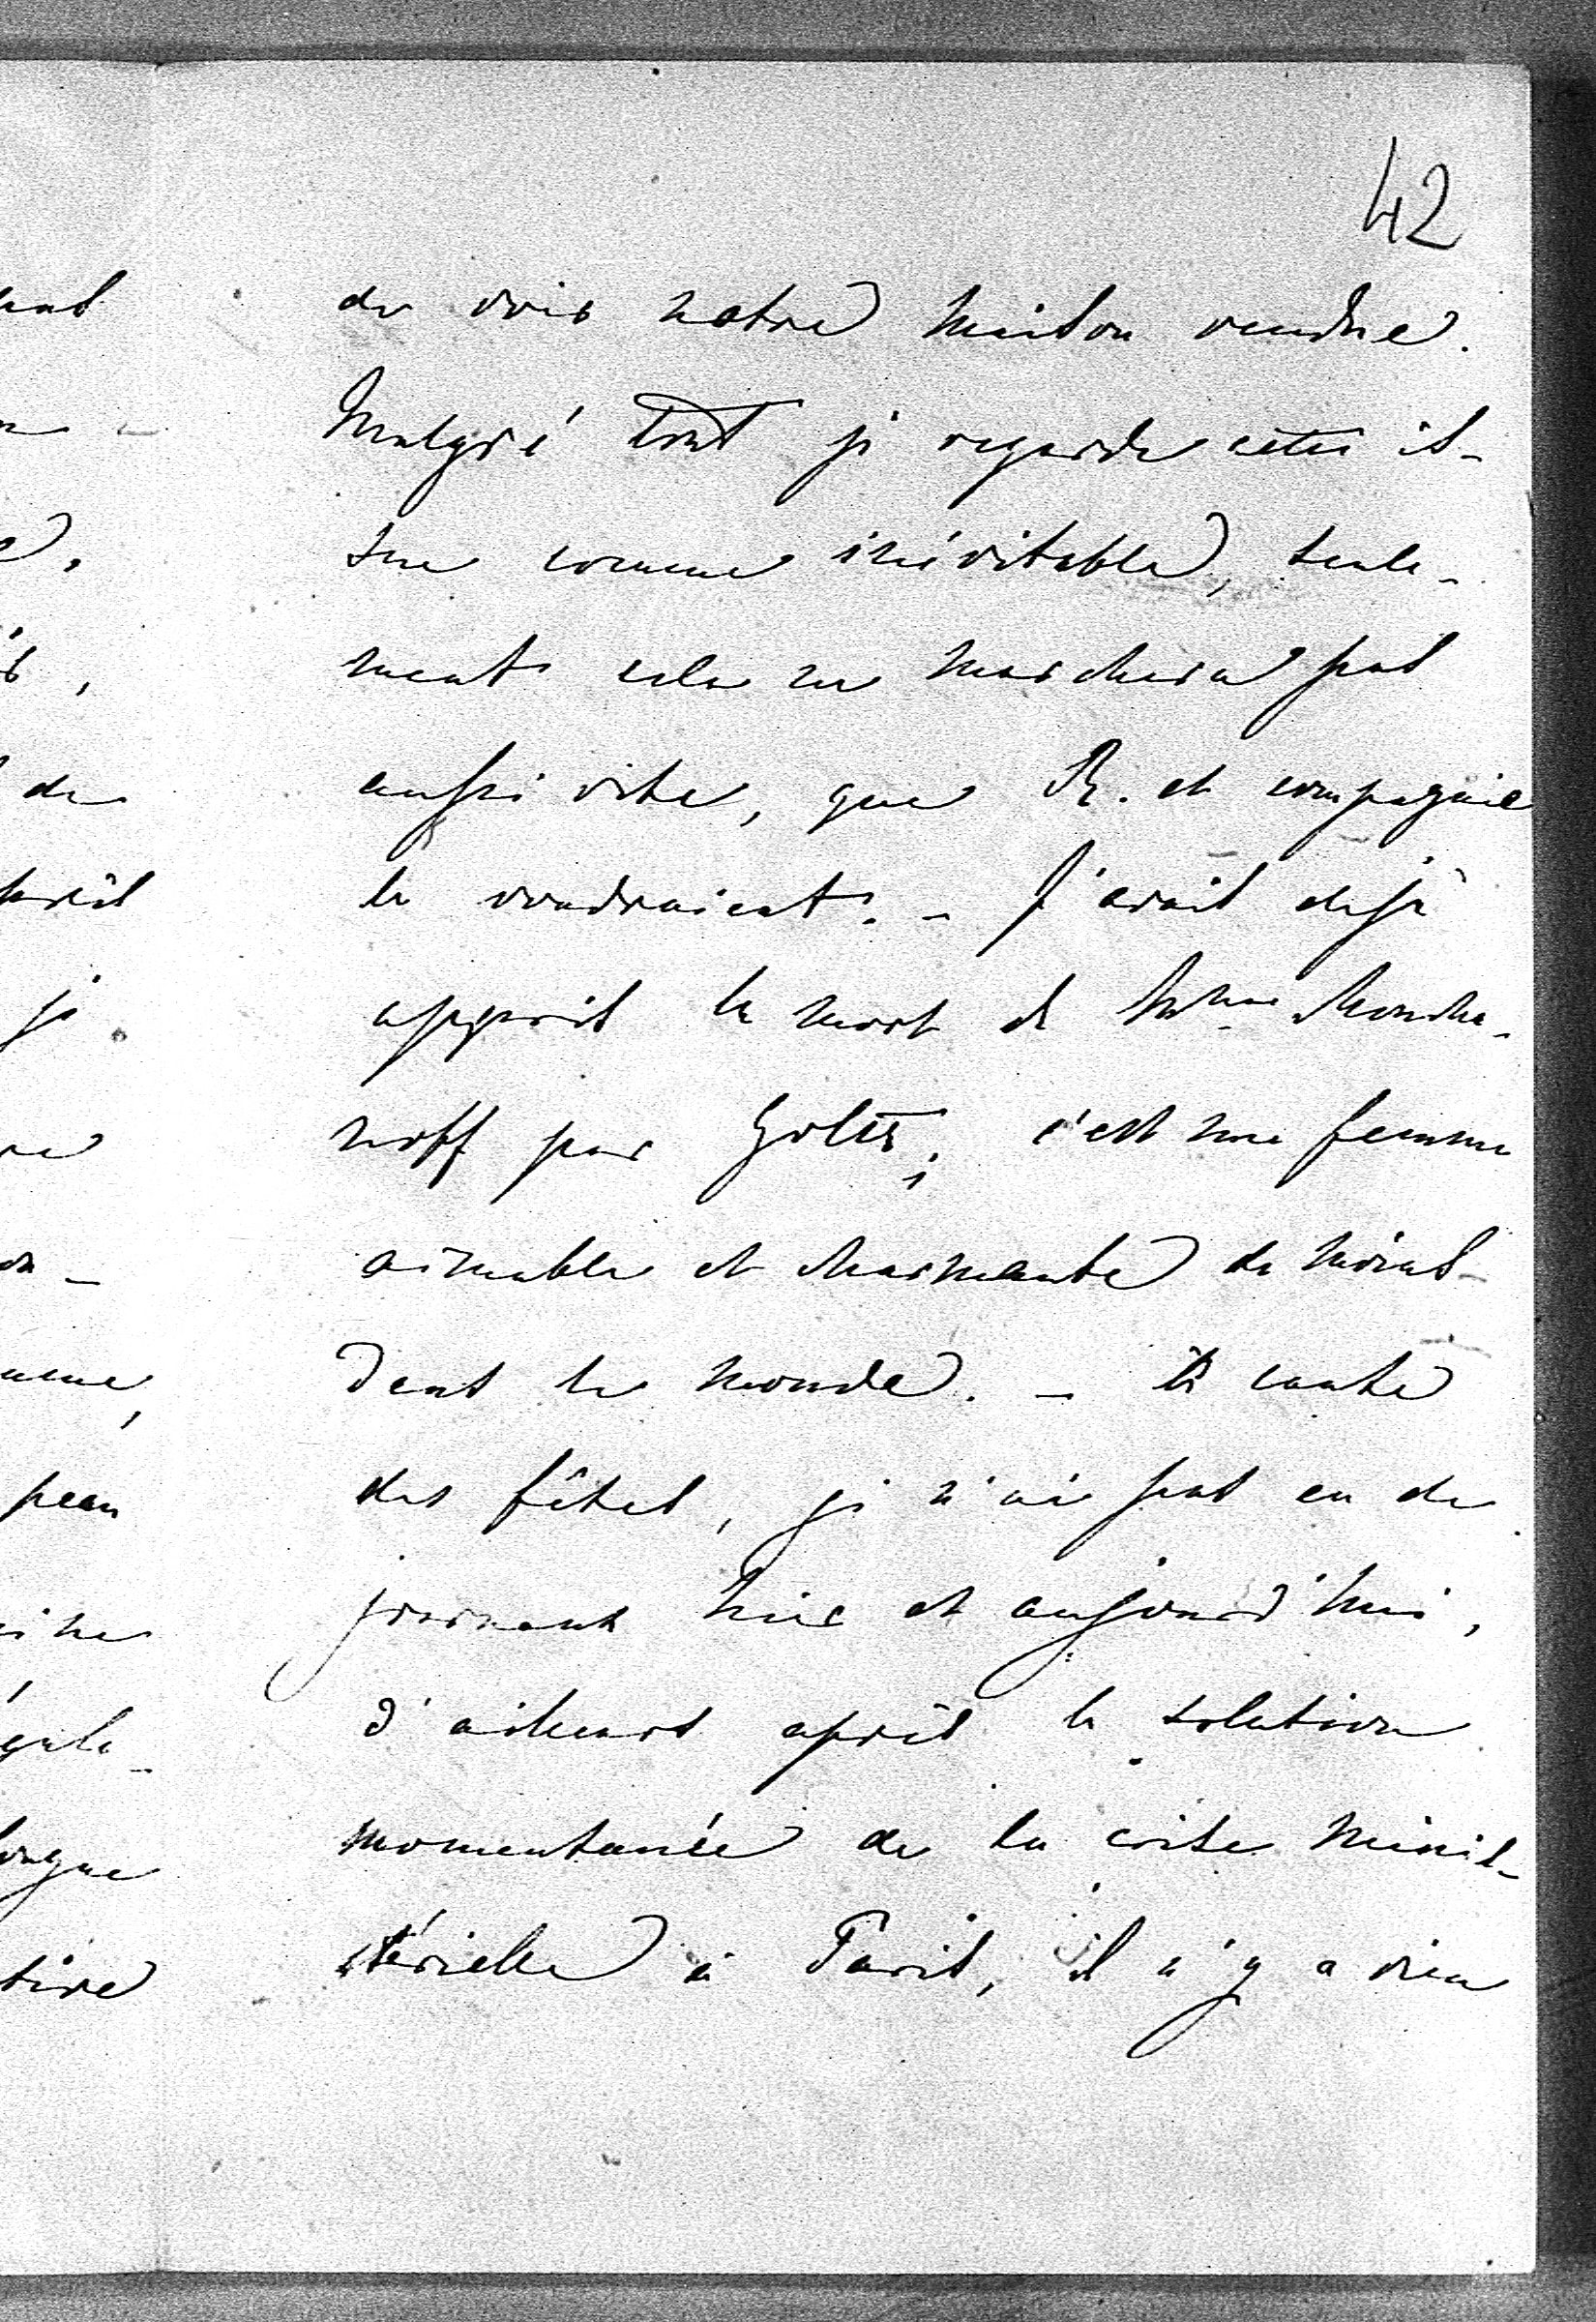 42
de voir notre maison vendue.
Malgré tout je regarde cette is-
sue comme inévitable, seule-
ment cela ne marchera pas
aussi vite, que R. et compagnie
le voudraient. - J'avais déjà
appris la mort de Mme Moucha-
noff par Goltz; c'est une femme
aimable et charmante de moins
dans le monde. - à cause
des fêtes, je n'ai pas eu de
journaux hier et aujourd'hui,
d'ailleurs après la solution
momentanée de la crise minis-
térielle à Paris, il n'y a rien